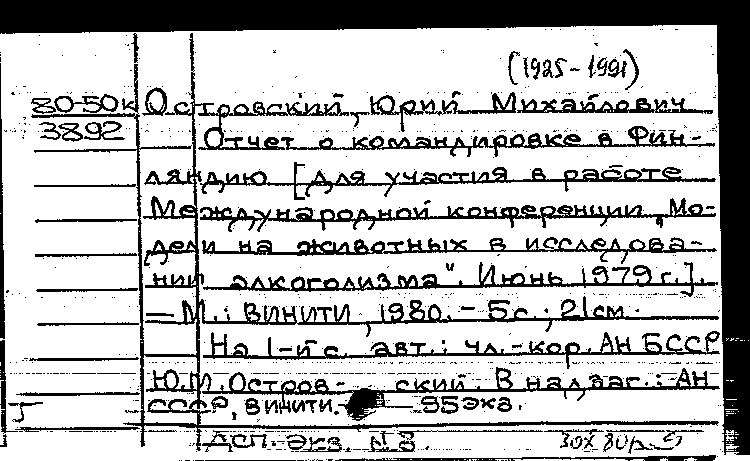 (1925-1991)
80-50к Островский, Юрий Михайлович
3892 Отчет о командировке в Фин-
ляндию [для участия в работе
Международной конференции „Мо-
дели на животных в исследова-
нии алкоголизма". Июнь 1979 г.].
— М.: ВИНИТИ, 1980. - 5 с.; 21 см.
На 1-й с. авт.: чл.-кор. АН БССР
Ю.М. Остров- ский. В надзаг.: АН
СССР, ВИНИТИ. 95 экз.
ДСП. Экз. N 3.